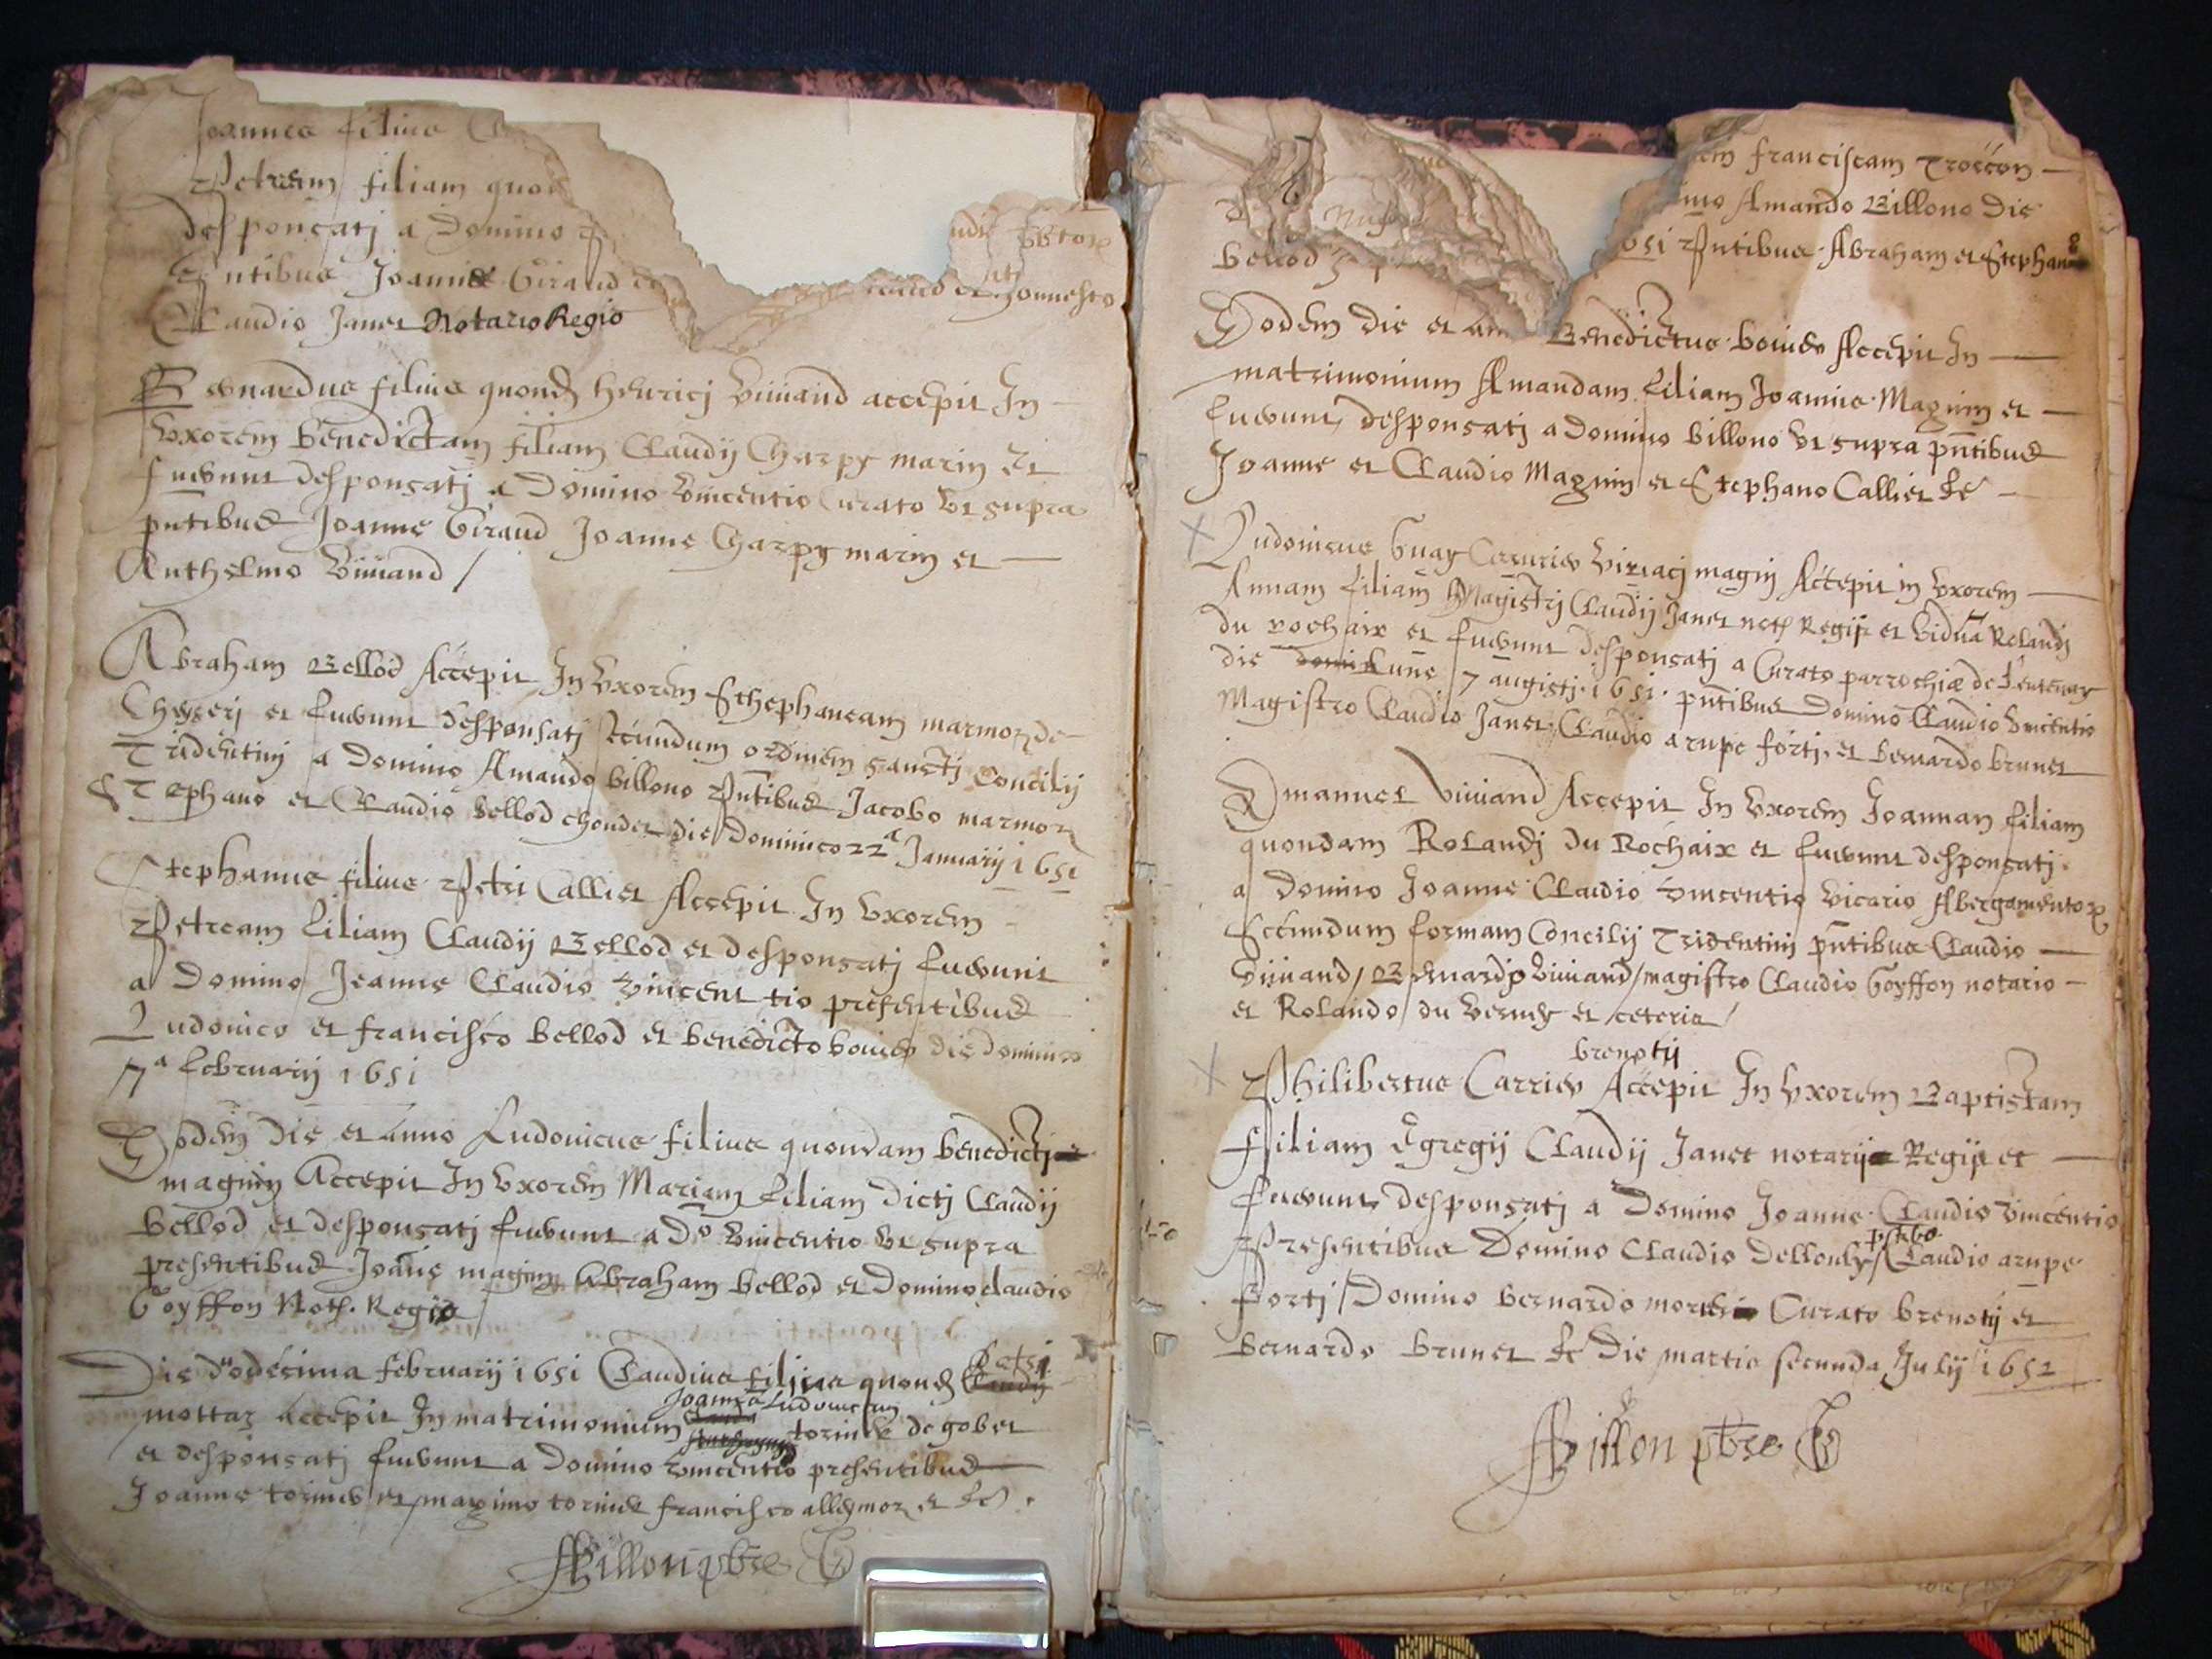 Joannes filius
Petream filiam quon
desponsatj a Domino
pntibus Joanne Giraud
Claudio Janet Notario Regio
Bernardus filius quond henricj Viviand accepit In
Vxorem benedictam filiam Claudij Charpy marin et
fuerunt desponsatj a Domino Vincentio Curato vt supra
pntibus Joanne Giraud Joanne Charpy marin et
Anthelmo Viviand /
Abraham Bellod Accepit In Vxorem Sthephaneam marmoz de
Cheyserj et fuerunt desponsatj secundum ordinem sanctj Concilij
Tridentinj a Domino Amando billono pntibus Jacobo marmoz
Stephano et Claudio bellod chondet die Dominico 22a Januarij 1651
Stephanus filius Petri Calliet Accepit In Vxorem
Petream filiam Claudij Bellod et desponsatj fuerunt
a Domino Jeanne Claudio Vincent tio presentibus
Ludovico et francisco bellod et benedicto bovier die dominico
7a februarij 1651
Eodem die et anno Ludovicus filius quondam benedictj
magnin Accepit In Vxorem Mariam filiam dictj Claudij
bellod et desponsatj fuerunt a Do Vincentio vt supra
presentibus Joane magnin Abraham bellod et Domino claudio
Goyffon Not. Regio
Die duodecima februarij 1651 Claudius filius quond Petri
mottaz accepit In matrimonium Joannea Ludovicam torinier de gobet
et desponsatj fuerunt a Domino Vincentio presentibus
Joanne torinier et maximo torinier francisco alleymoz et &c.
ABillon pbre
em franciscam Troccon
ino Amando Billono die
651 Pntibus Abraham et Stephano
bellod
Eodem die et ann Benedictus bovier Accepit In
matrimonium Amandam filiam Joannis Magnin et
fuerunt desponsatj a Domino billono vt supra pntibus
Joanne et Claudio Magnin et Stephano Calliet &c
Ludovicus Guay Viriacj magnj Accepit in Vxorem
Annam filiam Magistrj Claudij Janet not Regij et vidua Rolandj
du rochaix et fuerunt desponsatj a Curato parrochiæ de
die Lune 7 augustj 1651. pntibus Domino Claudio Vincentio
Magistro Claudio Janet Claudio a rupe fortj et bernardo brunet
Emanuel Viviand Accepit In Vxorem Joannam filiam
quondam Rolandj du Rochaix et fuerunt desponsatj
a Domino Joanne Claudio Vincentio Vicario Abergamentor
Secundum formam Concilij Tridentinj pntibus Claudio
Viviand / Bernardo Viviand / magistro Claudio Goyffon notario
et Rolando du Verney et ceteris /
brenotij
Philibertus Carrier Accepit In Vxorem Baptistam
filiam Egregij Claudij Janet notarij Regij et
fuerunt desponsatj a Domino Joanne Claudio Vincentio
pstbo
Presentibus Domino Claudio Claudio arupe
fortj / Domino bernardo Curato brenotij et
bernardo brunet &c die martis secunda Julij 1652
ABillon pbre